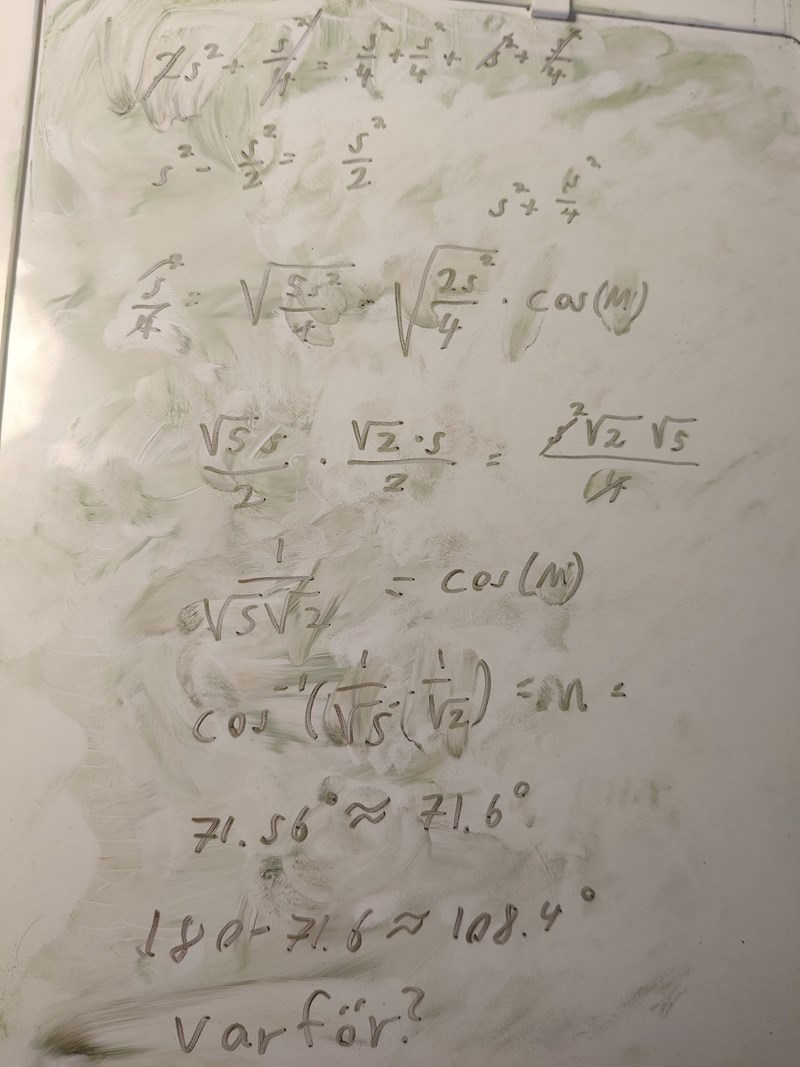 2s² + s²/4 = s²/4 + s²/4 + s² + s²/4
s² - s²/2 = s²/2
s² + s²/4
s²/4 = √(5s²/4) · √(2s²/4) · cos(M)
√5 s/2 · √2 · s/2 = s²√2 √5/4
1/√5√2 = cos(M)
cos⁻¹(1/√5 · 1/√2) = M =
71.56° ≈ 71.6°
180 - 71.6 ≈ 108.4°
Varför?